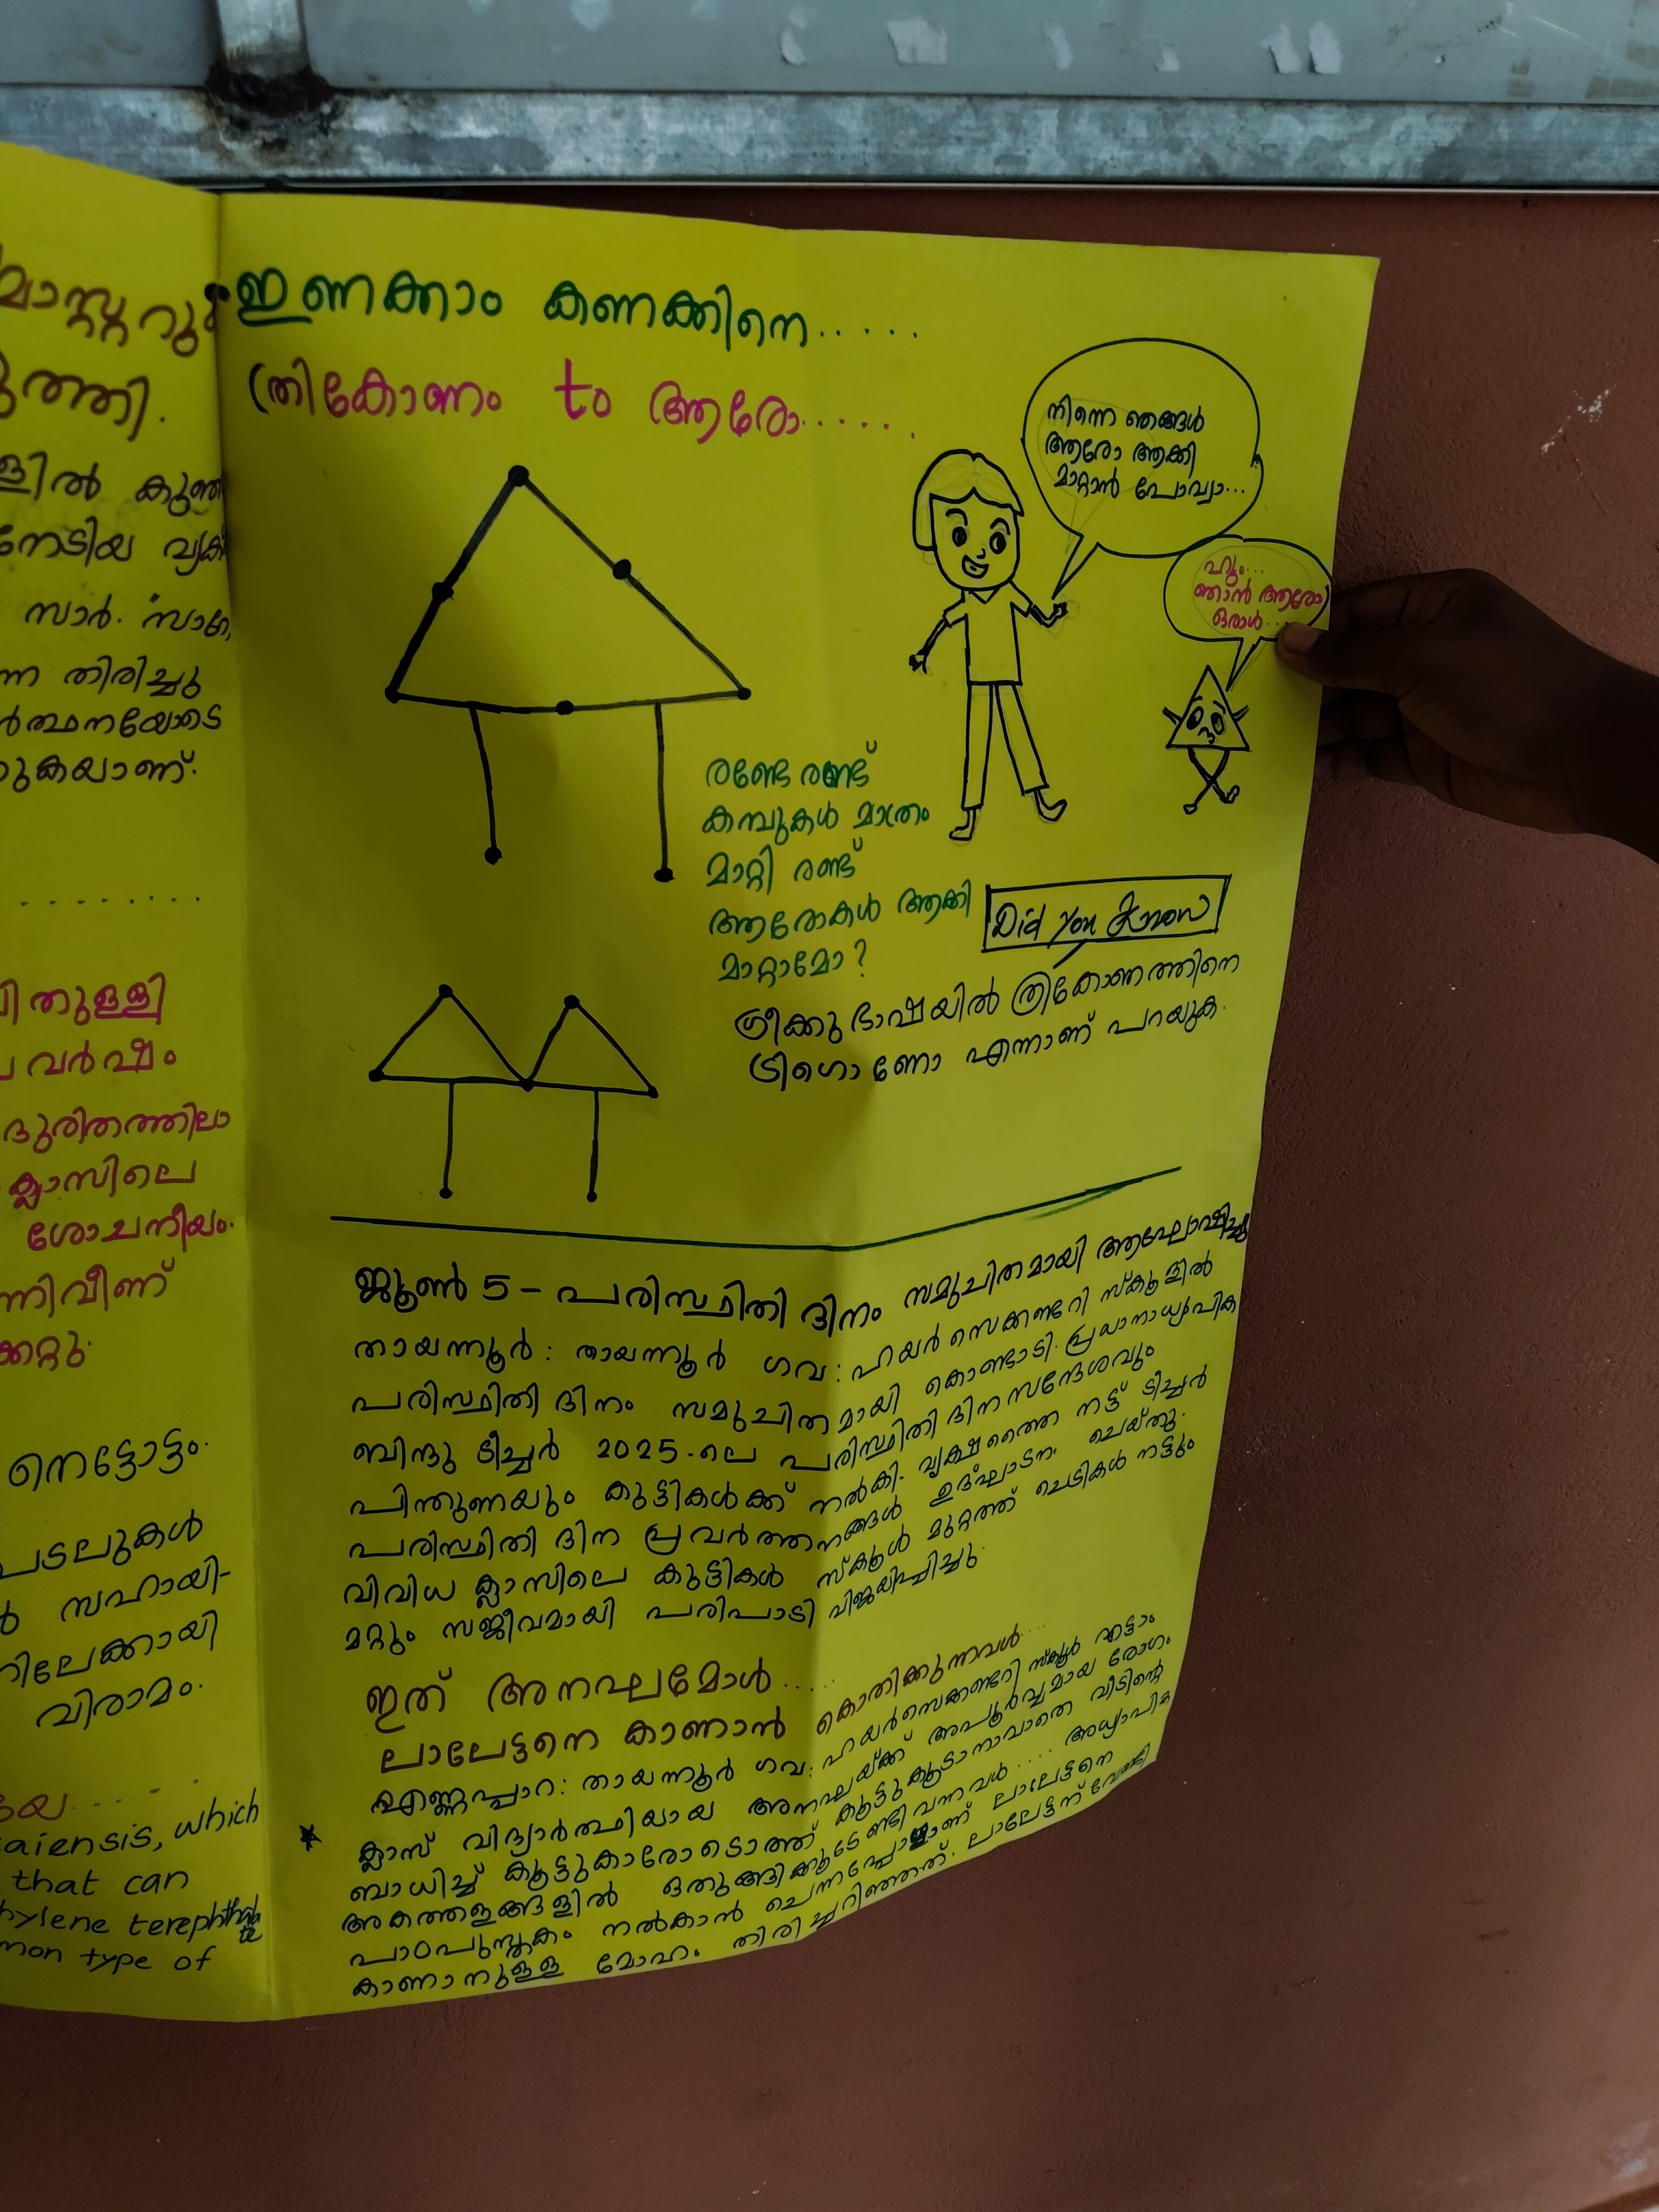 മാസ്റ്ററും
ത്തി.
ളിൽ കുഞ്ഞ
നേടിയ വ്യക്
സാർ. സാറെ,
ന്ന തിരിച്ചു
ർത്ഥനയോടെ
റുകയാണ്.
. . . . . . . . .
തുള്ളി
വർഷം
ദുരിതത്തിലാ
ക്ലാസിലെ
ശോചനീയം.
ന്നിവീണ്
ക്കേറ്റു.
നെട്ടോട്ടം.
പടലുകൾ
സഹായി-
റിലേക്കായി
വിരാമം.
aiensis, which
that can
hylene terephthalate
mon type of
ഇണക്കാം കണക്കിനെ......
ത്രികോണം to ആരോ......
നിന്നെ ഞങ്ങൾ
ആരോ ആക്കി
മാറ്റാൻ പോവ്വാ...
ഹും...
ഞാൻ ആരോ
ഒരാൾ...
രണ്ടേ രണ്ട്
കമ്പുകൾ മാത്രം
മാറ്റി രണ്ട്
ആരോകൾ ആക്കി
മാറ്റാമോ?
Did You Know
ഗ്രീക്കു ഭാഷയിൽ ത്രികോണത്തിനെ
ട്രിഗൊണോ എന്നാണ് പറയുക.
ജൂൺ 5 - പരിസ്ഥിതി ദിനം സമുചിതമായി ആഘോഷിച്ചു
തായന്നൂർ: തായന്നൂർ ഗവ: ഹയർ സെക്കണ്ടറി സ്കൂളിൽ
പരിസ്ഥിതി ദിനം സമുചിതമായി കൊണ്ടാടി. പ്രധാനാധ്യാപിക
ബിന്ദു ടീച്ചർ 2025-ലെ പരിസ്ഥിതി ദിന സന്ദേശവും
പിന്തുണയും കുട്ടികൾക്ക് നൽകി. വൃക്ഷത്തൈ നട്ട് ടീച്ചർ
പരിസ്ഥിതി ദിന പ്രവർത്തനങ്ങൾ ഉദ്ഘാടനം ചെയ്തു.
വിവിധ ക്ലാസിലെ കുട്ടികൾ സ്കൂൾ മുറ്റത്ത് ചെടികൾ നട്ടും
മറ്റും സജീവമായി പരിപാടി വിജയിപ്പിച്ചു.
ഇത് അനഘമോൾ.....
ലാലേട്ടനെ കാണാൻ കൊതിക്കുന്നവൾ....
എണ്ണപ്പാറ: തായന്നൂർ ഗവ: ഹയർസെക്കണ്ടറി സ്കൂൾ എട്ടാം
ക്ലാസ് വിദ്യാർത്ഥിയായ അനഘയ്ക്ക് അപൂർവ്വമായ രോഗം
ബാധിച്ച് കൂട്ടുകാരോടൊത്ത് കൂട്ടുകൂടാനാവാതെ വീടിന്റെ
അകത്തളങ്ങളിൽ ഒതുങ്ങിക്കൂടേണ്ടി വന്നവൾ.... അധ്യാപിക
പാഠപുസ്തകം നൽകാൻ ചെന്നപ്പോളാണ് ലാലേട്ടനെ
കാണാനുള്ള മോഹം തിരിച്ചറിഞ്ഞത്. ലാലേട്ടന് വേണ്ടി